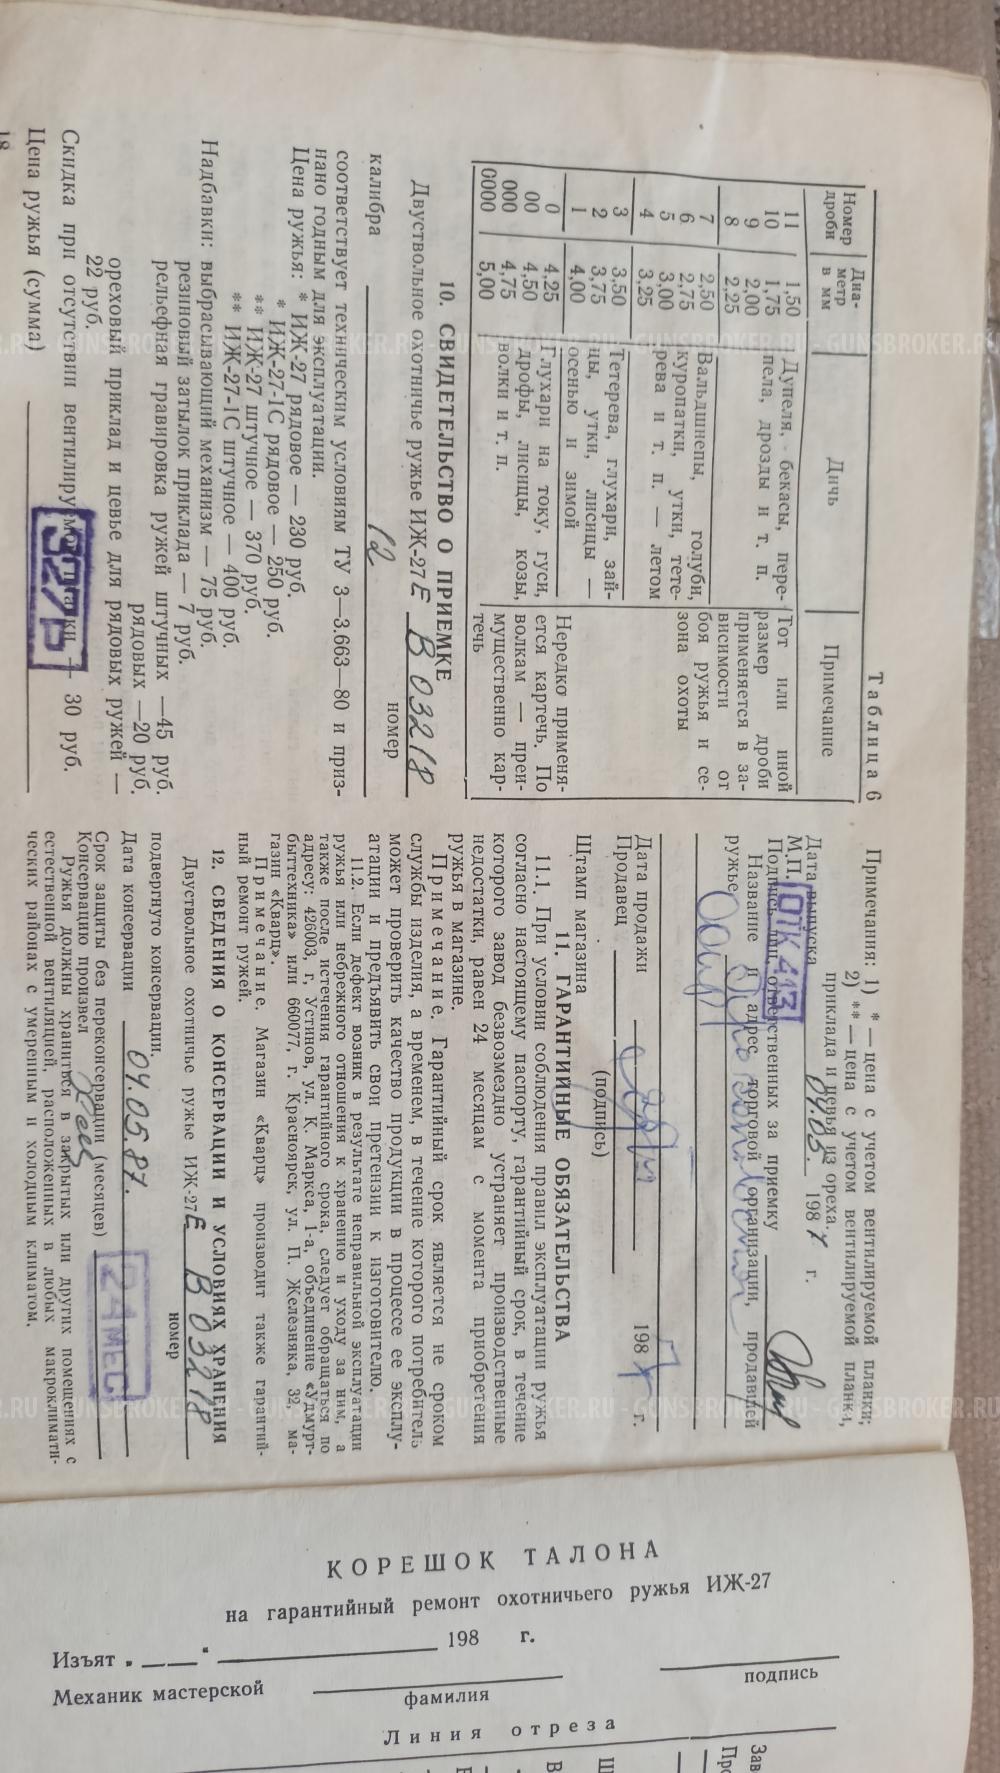 Таблица 6
Номер дроби
Диаметр в мм
Дичь
Примечание
11 1,50
10 1,75
9 2,00
8 2,25
Дупеля, бекасы, пере-
пела, дрозды и т. п.
7 2,50
6 2,75
5 3,00
4 3,25
Вальдшнепы, голуби,
куропатки, утки, тете-
рева и т. п. — летом
3 3,50
2 3,75
1 4,00
Тетерева, глухари, зай-
цы, утки, лисицы —
осенью и зимой
0 4,25
00 4,50
000 4,75
0000 5,00
Глухари на току, гуси,
дрофы, лисицы, козы,
волки и т. п.
Тот или иной
размер дроби
применяется в за-
висимости от
боя ружья и се-
зона охоты
Нередко применя-
ется картечь. По
волкам — преи-
мущественно кар-
течь
10. СВИДЕТЕЛЬСТВО О ПРИЕМКЕ
Двуствольное охотничье ружье ИЖ-27Е В 03218
номер
калибра 12
соответствует техническим условиям ТУ 3—3.663—80 и приз-
нано годным для эксплуатации.
Цена ружья: * ИЖ-27 рядовое — 230 руб.
* ИЖ-27-1С рядовое — 250 руб.
** ИЖ-27 штучное — 370 руб.
** ИЖ-27-1С штучное — 400 руб.
Надбавки: выбрасывающий механизм — 75 руб.
резиновый затылок приклада — 7 руб.
рельефная гравировка ружей штучных —45 руб.
рядовых —20 руб.
ореховый приклад и цевье для рядовых ружей —
22 руб.
Скидка при отсутствии вентилируемой планки — 30 руб.
Цена ружья (сумма)
18
Примечания: 1) * — цена с учетом вентилируемой планки;
2) ** — цена с учетом вентилируемой планки,
приклада и цевья из ореха.
Дата выпуска 04.05. 1987 г.
М.П.
ОТК 413
Подпись лиц, ответственных за приемку
Название и адрес торговой организации, продавшей
ружье
Дата продажи 1987 г.
Продавец
(подпись)
Штамп магазина
11. ГАРАНТИЙНЫЕ ОБЯЗАТЕЛЬСТВА
11.1. При условии соблюдения правил эксплуатации ружья
согласно настоящему паспорту, гарантийный срок, в течение
которого завод безвозмездно устраняет производственные
недостатки, равен 24 месяцам с момента приобретения
ружья в магазине.
Примечание. Гарантийный срок является не сроком
службы изделия, а временем, в течение которого потребитель
может проверить качество продукции в процессе ее эксплу-
атации и предъявить свои претензии к изготовителю.
11.2. Если дефект возник в результате неправильной эксплуатации
ружья или небрежного отношения к хранению и уходу за ним, а
также после истечения гарантийного срока, следует обращаться по
адресу: 426003, г. Устинов, ул. К. Маркса, 1-а, объединение «Удмурт-
быттехника» или 660077, г. Красноярск, ул. П. Железняка, 32, ма-
газин «Кварц».
Примечание. Магазин «Кварц» производит также гарантий-
ный ремонт ружей.
12. СВЕДЕНИЯ О КОНСЕРВАЦИИ И УСЛОВИЯХ ХРАНЕНИЯ
Двуствольное охотничье ружье ИЖ-27Е В 03218
номер
подвергнуто консервации.
Дата консервации 04.05.87.
Срок защиты без переконсервации (месяцев) 24 МЕС
Консервацию произвел
Ружья должны храниться в закрытых или других помещениях с
естественной вентиляцией, расположенных в любых макроклимати-
ческих районах с умеренным и холодным климатом.
КОРЕШОК ТАЛОНА
на гарантийный ремонт охотничьего ружья ИЖ-27
Изъят „ “ 198 г.
Механик мастерской
фамилия
подпись
Линия отреза
GUNSBROKER.RU - GUNSBROKER.RU - GUNSBROKER.RU